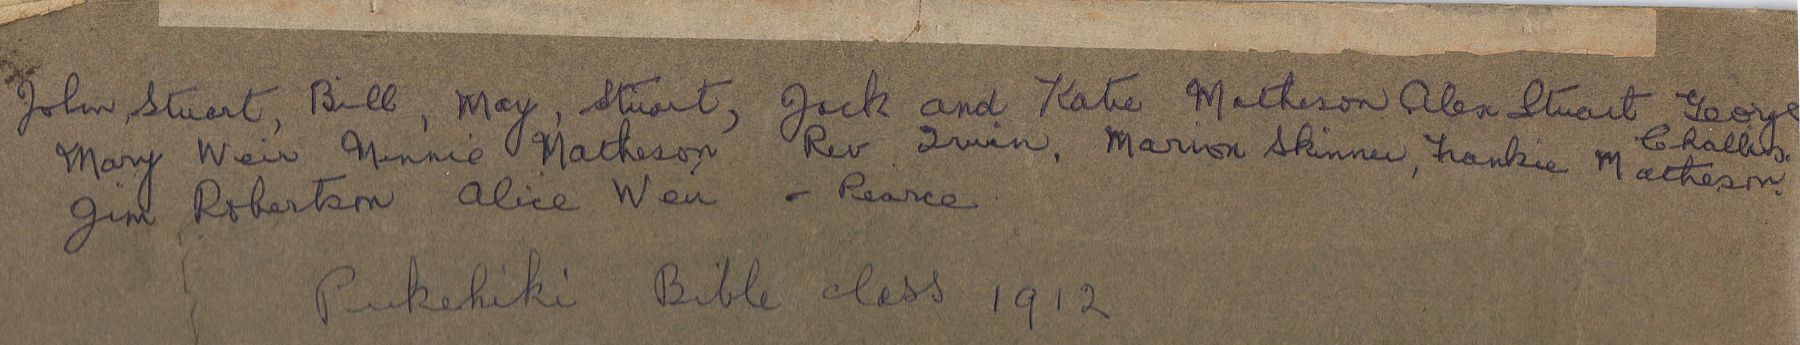 John Stuart, Bill, May, Stuart, Jack and Katie Matheson Alex Stuart George
Challis.
Mary Weir Minnie Matheson Rev Irwin, Marion Skinner, Frankie Matheson.
Jim Robertson Alice Weir - Pearce
Pukehiki Bible class 1912